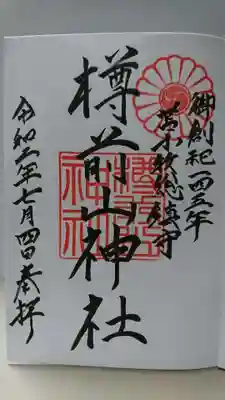 御創祀一四五年
苫小牧総鎮守
樽前山神社
令和二年七月四日奉拝